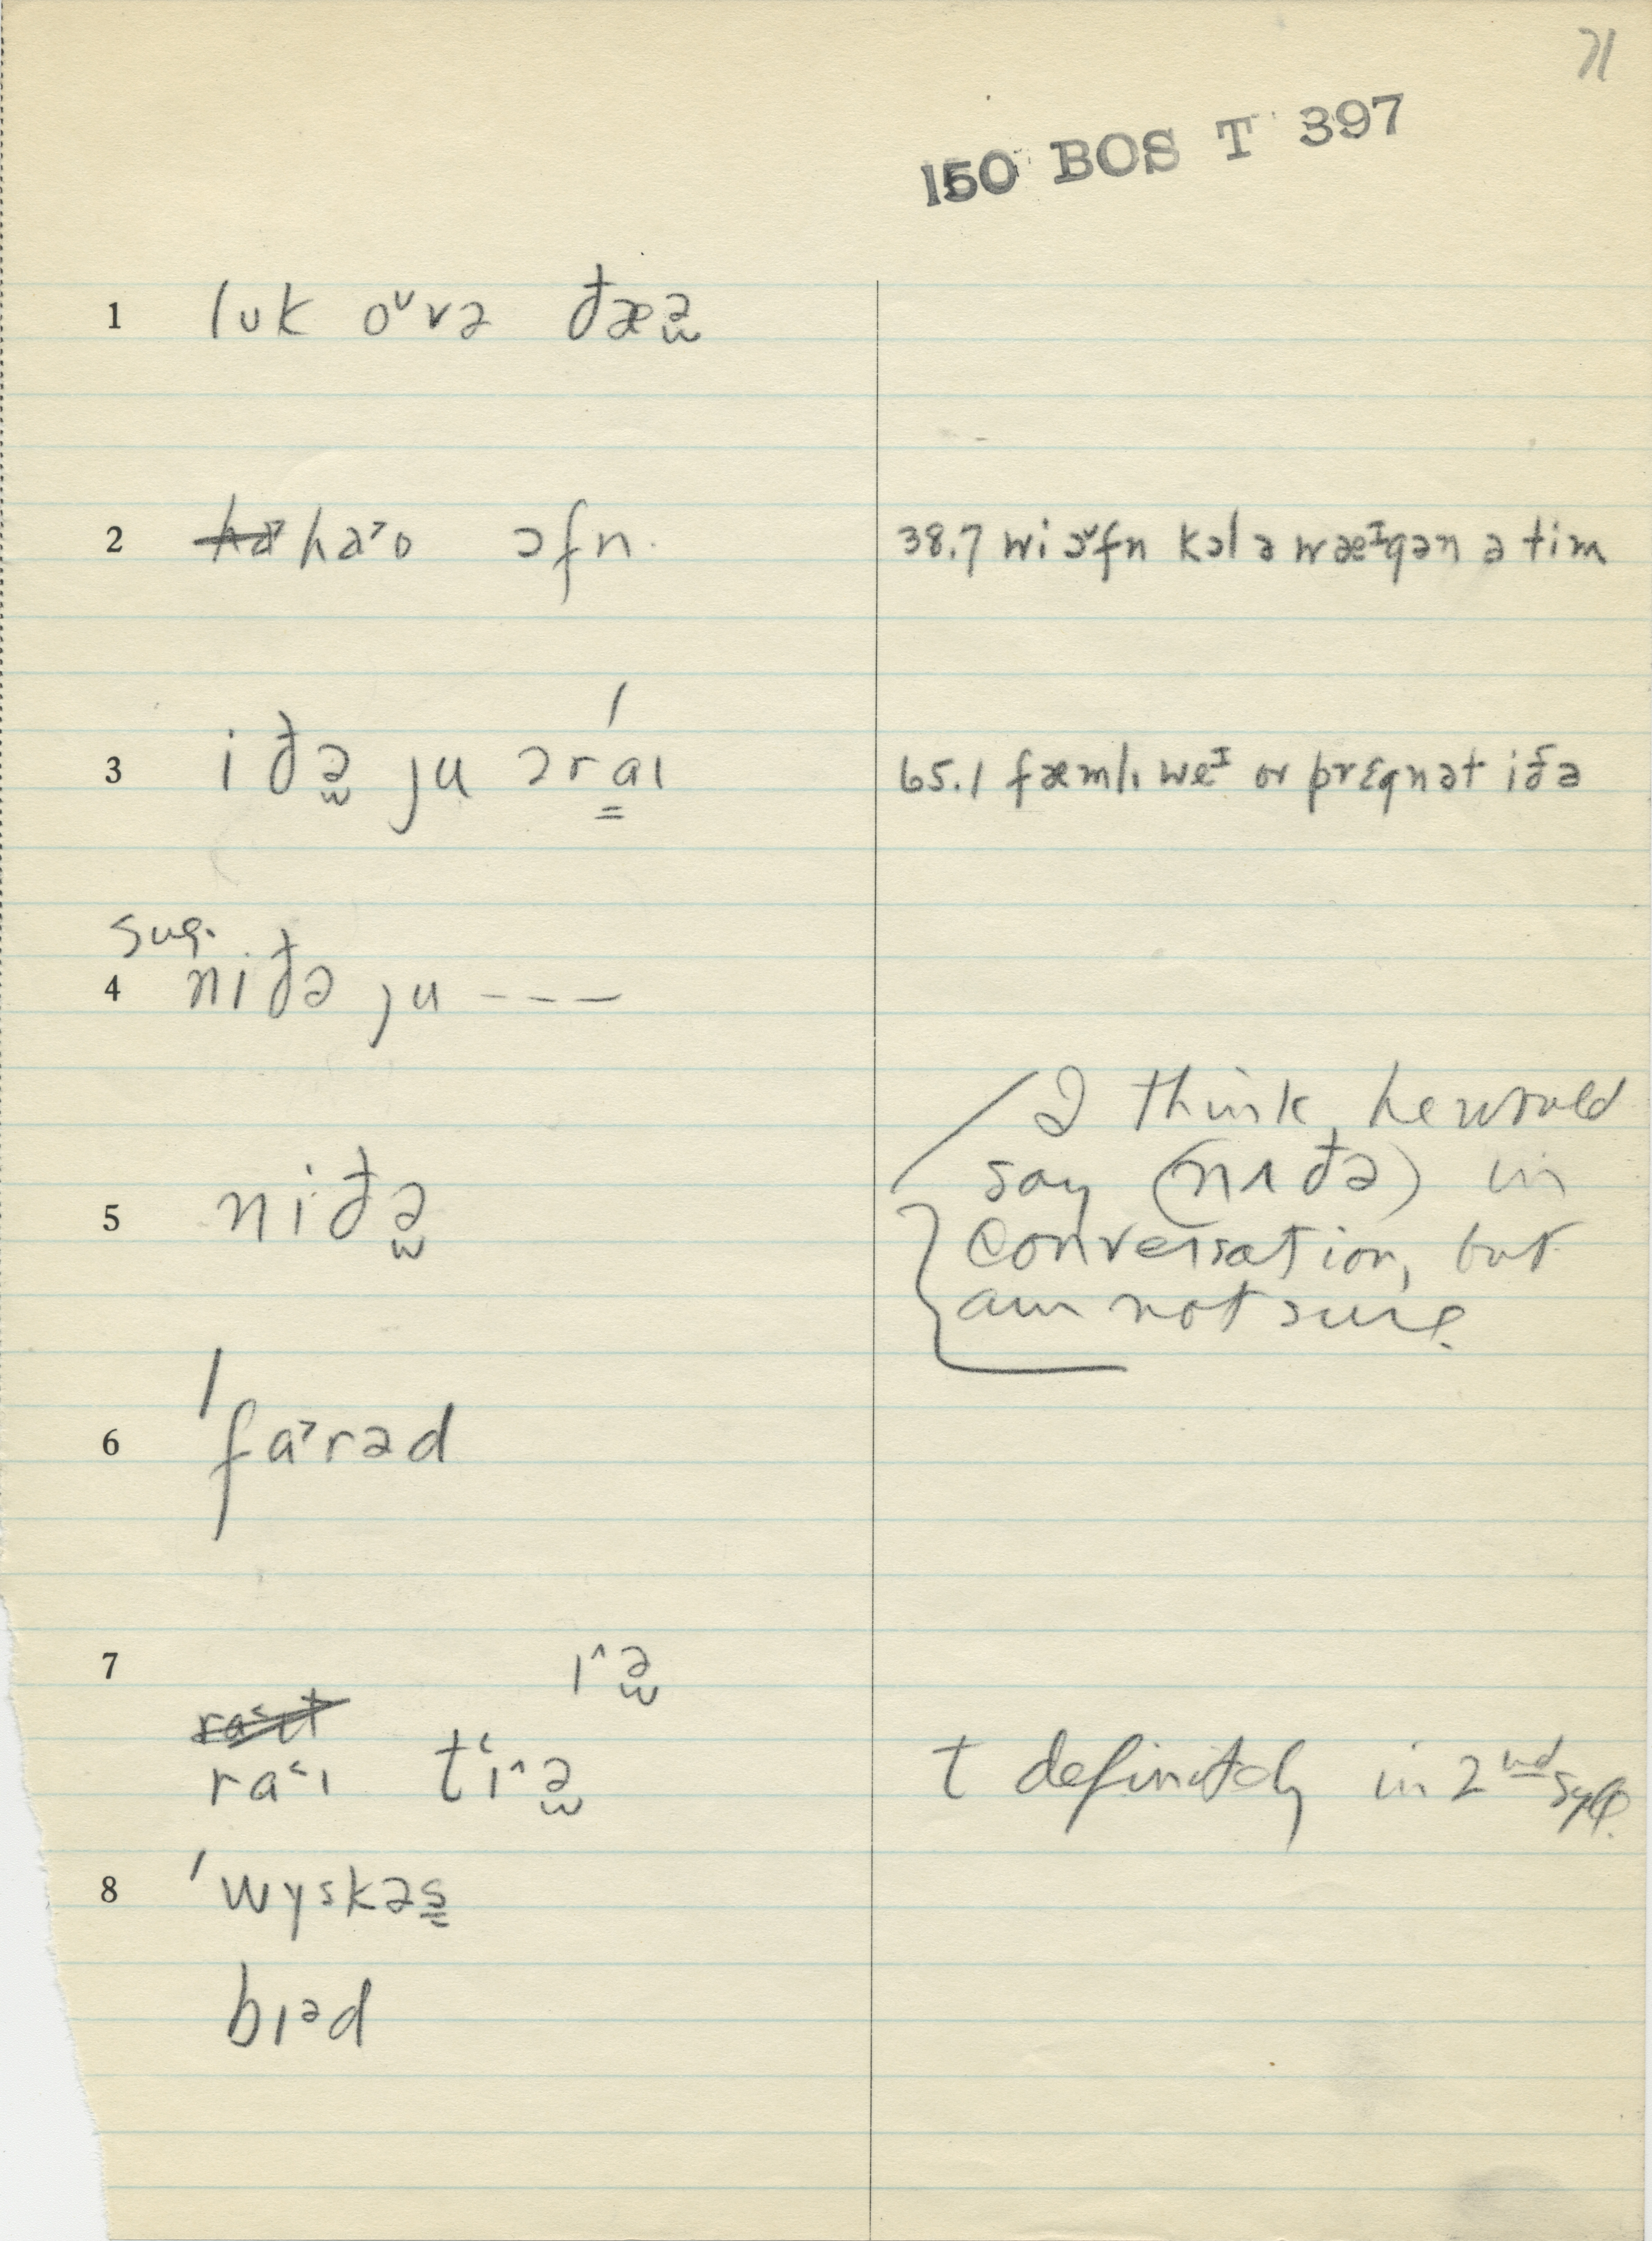 71
150 BOS T 397
1 lʊk oᵛvə đæə̫
2 ha˃o ɔfn.
38.7 wi ɔ˅fn kɔl ə wæᴵgən ə tim
3 iđə̫ ju ɔrá̳ɪ
65.1 fæmlɪ weᴵ or prɛgnət iđə
sug.
4 niđə ju - - - —
5 niđə̫
I think he would
say (nɪđə) in
conversation, but
am not sure.
6 ˈfa˃rəd
7 ɪ^ə̫
ra˂ɪ t‘ɪ^ə̫
t definitely in 2nd syll.
8 ˈwyskəs̳
bɪᵊd